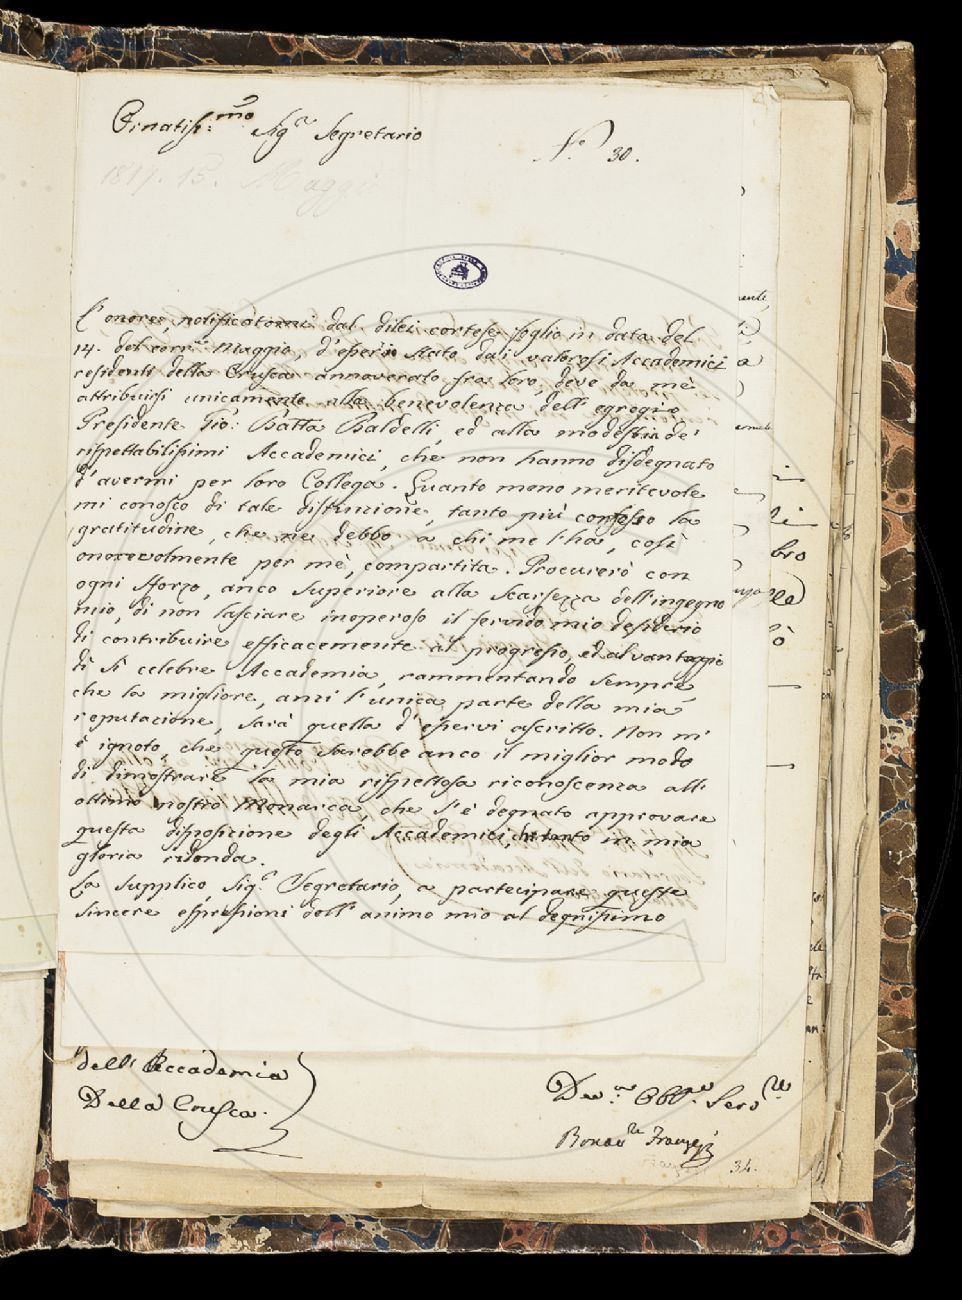 Ornatiss:mo Sig.r Segretario
N.o 30.
1817. 15. Maggio
L'onore, notificatomi dal di lei cortese foglio in data del
14. del corr.te Maggio, d'esser io stato dali valorosi Accademici
residenti della Crusca annoverato fra loro, deve da mè
attribuirsi unicamente alla benevolenza dell'egregio
Presidente Gio: Batta Baldelli, ed alla modestia de'
rispettabilissimi Accademici, che non hanno disdegnato
d'avermi per loro Collega. Quanto meno meritevole
mi conosco di tale distinzione, tanto più confesso la
gratitudine, che ne debbo a chi me l'ha, così
onorevolmente per mè, compartita. Procurerò con
ogni sforzo, anco superiore alla scarsezza dell'ingegno
mio, di non lasciare inoperoso il fervido mio desiderio
di contribuire efficacemente al progresso, ed al vantaggio
di sì celebre Accademia, rammentando sempre,
che la migliore, anzi l'unica parte della mia
reputazione, sarà quella d'esservi ascritto. Non m'
è ignoto, che questo sarebbe anco il miglior modo
di dimostrare la mia rispettosa riconoscenza all'
ottimo nostro Monarca, che s'è degnato approvare
questa disposizione degli Accademici, che tanto in mia
gloria ridonda.
La supplico, Sig.r Segretario, a partecipare queste
sincere espressioni dell'animo mio al degnissimo
dell'Accademia
Della Crusca.
Dev.mo Obb.mo Serv.re
34.